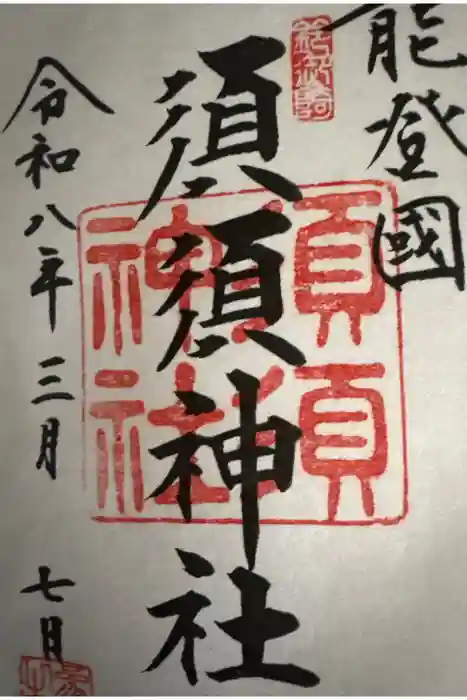 能登國
須須神社
須須
神社
令和八年三月七日